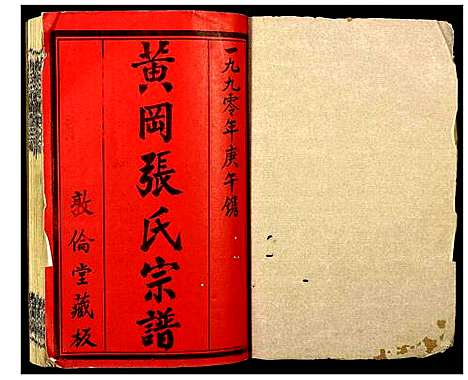 一九九零年庚午鐫
黄岡張氏宗譜
敦倫堂藏板